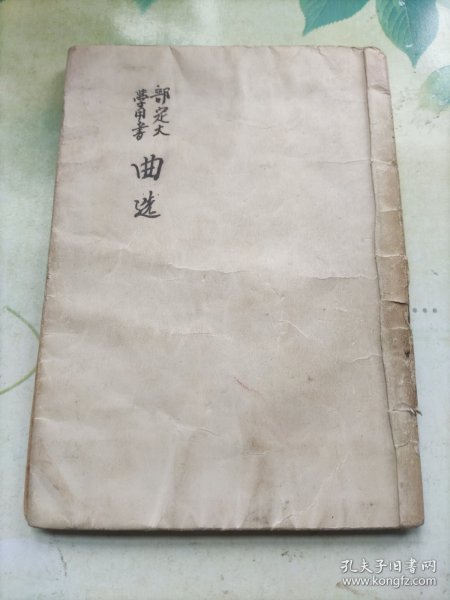 部定大
學用書
曲选
孔夫子旧书网
www.kongfz.com